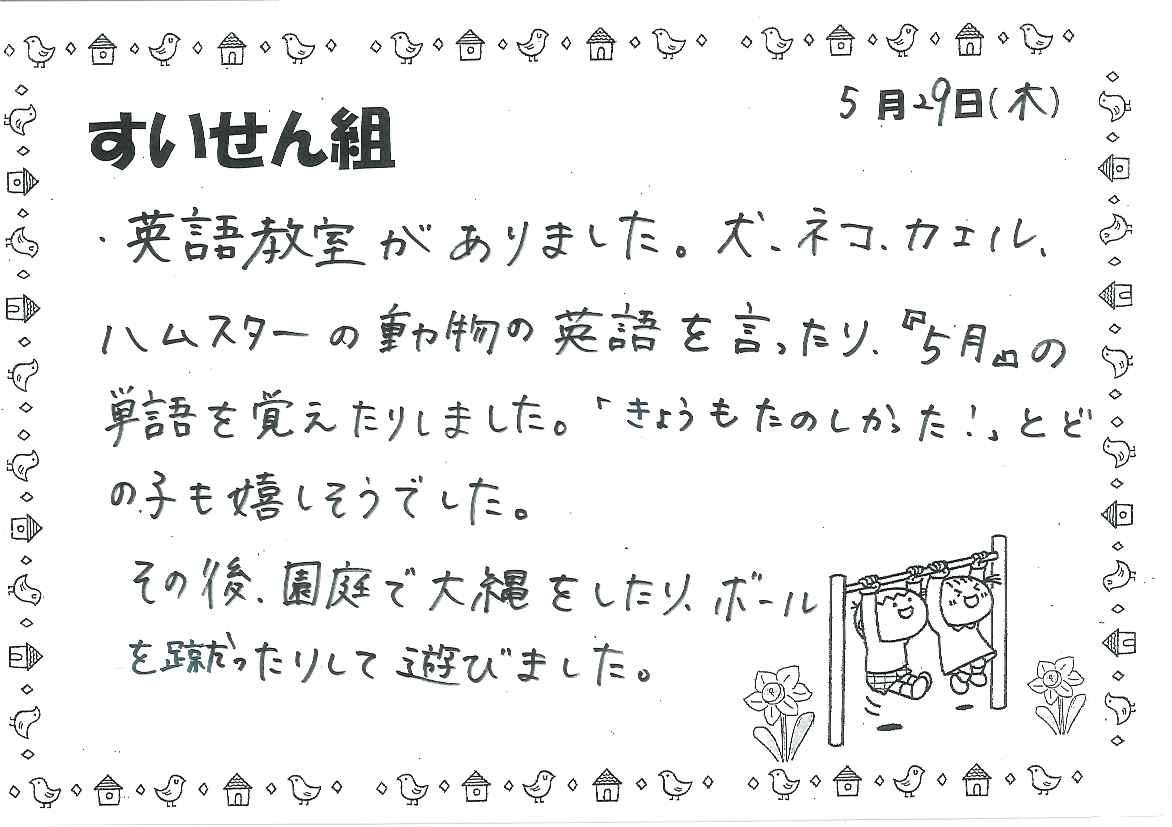 5月29日(木)
すいせん組
・英語教室がありました。犬、ネコ、カエル、
ハムスターの動物の英語を言ったり、『5月』の
単語を覚えたりしました。「きょうもたのしかった!」とど
の子も嬉しそうでした。
その後、園庭で大縄をしたり、ボール
を蹴ったりして遊びました。